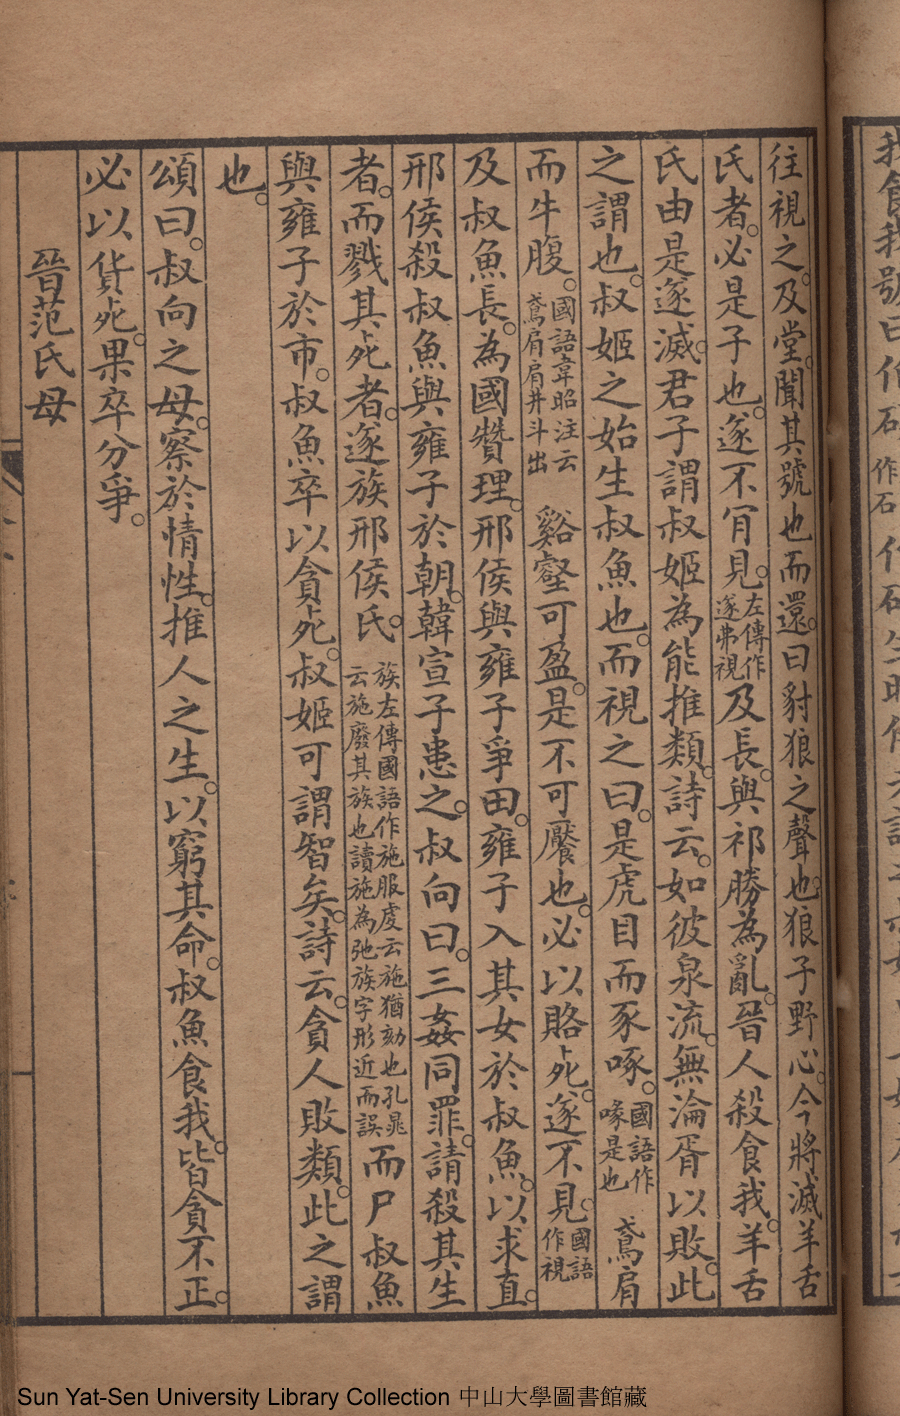 往視之。及堂。聞其號也而還。曰豺狼之聲也。狼子野心。今將滅羊舌
氏者。必是子也。遂不肎見。左傳作遂弗視及長。與祁勝為亂。晉人殺食我。羊舌
氏由是遂滅。君子謂叔姬為能推類。詩云。如彼泉流。無淪胥以敗。此
之謂也。叔姬之始生叔魚也。而視之曰。是虎目而豕啄。國語作喙是也鳶肩
而牛腹。國語韋昭注云鳶肩肩井斗出谿壑可盈。是不可饜也。必以賂死。遂不見。國語作視
及叔魚長。為國贊理。邢侯與雍子爭田。雍子入其女於叔魚。以求直。
邢侯殺叔魚與雍子於朝。韓宣子患之。叔向曰。三姦同罪。請殺其生
者。而戮其死者。遂族邢侯氏。族左傳國語作施服虔云施猶劾也孔晁云施廢其族也讀施為弛族字形近而誤而尸叔魚
與雍子於市。叔魚卒以貪死。叔姬可謂智矣。詩云。貪人敗類。此之謂
也。
頌曰。叔向之母。察於情性。推人之生。以窮其命。叔魚食我。皆貪不正。
必以貨死。果卒分爭。
晉范氏母
Sun Yat-Sen University Library Collection 中山大學圖書館藏